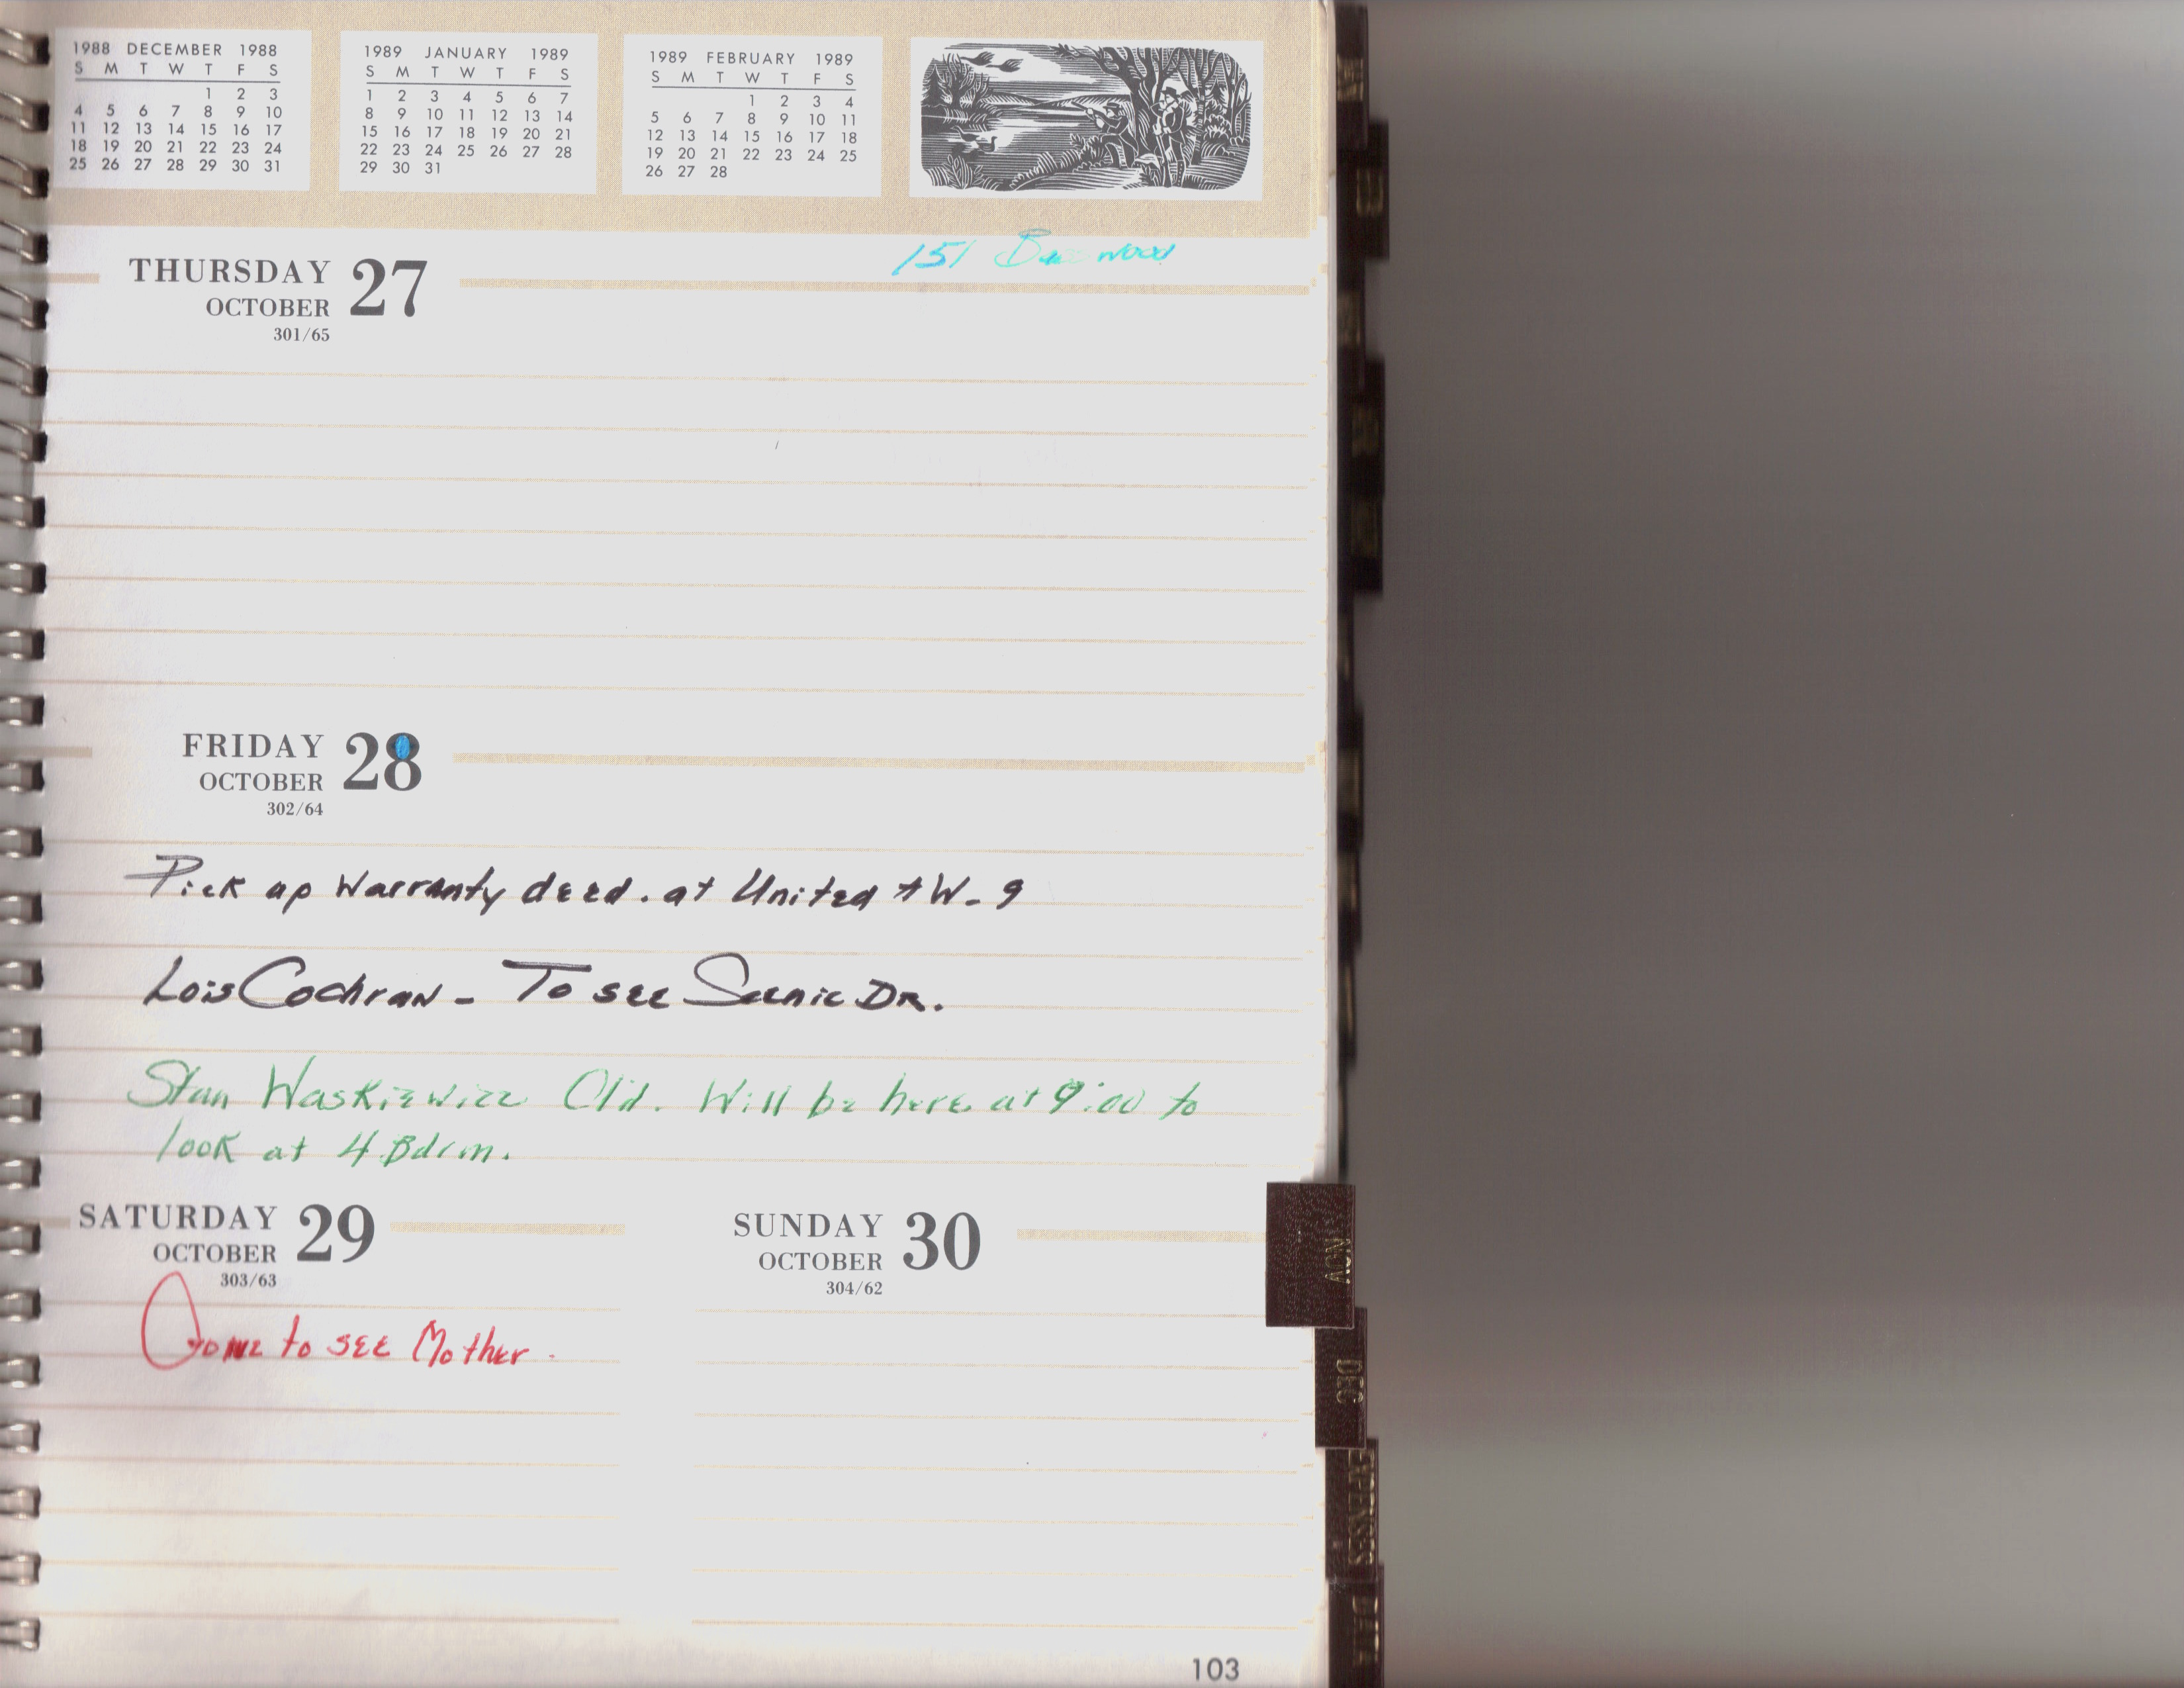 1988 DECEMBER 1988
S M T W T F S
1 2 3
4 5 6 7 8 9 10
11 12 13 14 15 16 17
18 19 20 21 22 23 24
25 26 27 28 29 30 31
1989 JANUARY 1989
S M T W T F S
1 2 3 4 5 6 7
8 9 10 11 12 13 14
15 16 17 18 19 20 21
22 23 24 25 26 27 28
29 30 31
1989 FEBRUARY 1989
S M T W T F S
1 2 3 4
5 6 7 8 9 10 11
12 13 14 15 16 17 18
19 20 21 22 23 24 25
26 27 28
151
THURSDAY 27
OCTOBER
301/65
FRIDAY 28
OCTOBER
302/64
Pick up Warranty deed. at United + W-9
Lois Cochran - To see Scenic DR.
Stan Waskiewicz Will be here at 9:00 to
look at 4 Bdrm.
SATURDAY 29
OCTOBER
303/63
to see Mother.
SUNDAY 30
OCTOBER
304/62
NOV
DEC
EXPENSES
DATA
103